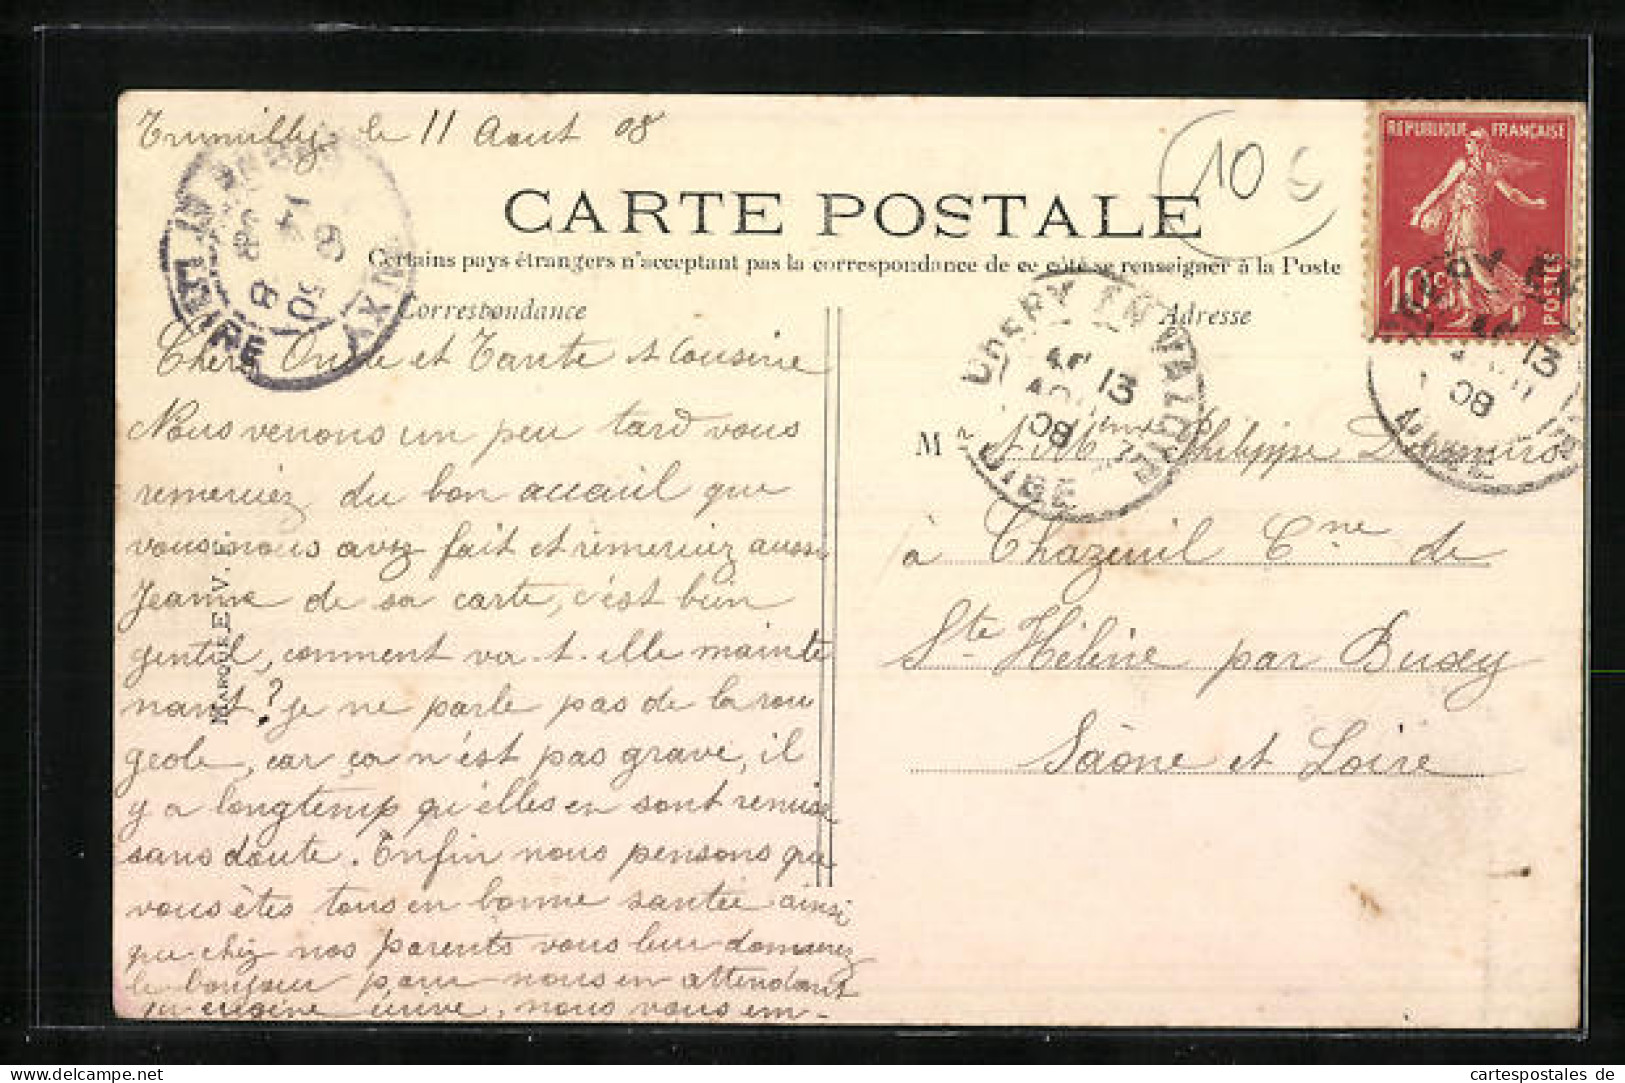 le 11 Aout 08
10 €
REPUBLIQUE FRANÇAISE
10c
POSTES
CARTE POSTALE
Certains pays étrangers n'acceptent pas la correspondance de ce côté se renseigner à la Poste
Correspondance
Adresse
Chers Oncle et Tante et Cousine
Nous venons un peu tard vous
remerciez du bon accauil que
vous nous avez fait et remerciez aussi
Jeanne de sa carte, c'est bien
gentil, comment va-t-elle mainte
nant? je ne parle pas de la rou
geole, car ça n'est pas grave, il
y a longtemps qu'elles en sont remise
sans doute. Enfin nous pensons que
vous êtes tous en bonne santée ainsi
que chez nos parents vous leur donnerez
le bonjour pour nous en attendant
écrive, nous vous em-
MARQUE E V.
M r et Mme Philippe
à Chazeuil Cne de
Ste Hélène par Buxy
Saône et Loire
13
08
OISE
13
08
cartespostales de